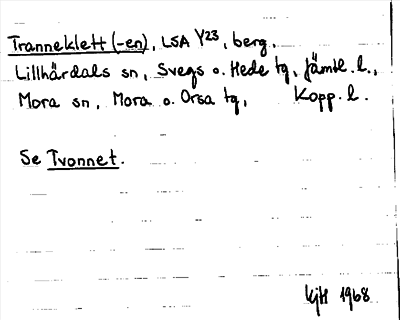 Tranneklett (-en), LSA Y23, berg.
Lillhärdals sn, Svegs o. Hede tg, Jämtl. l.,
Mora sn, Mora o. Orsa tg, Kopp. l.
Se Tvonnet.
KJH 1968